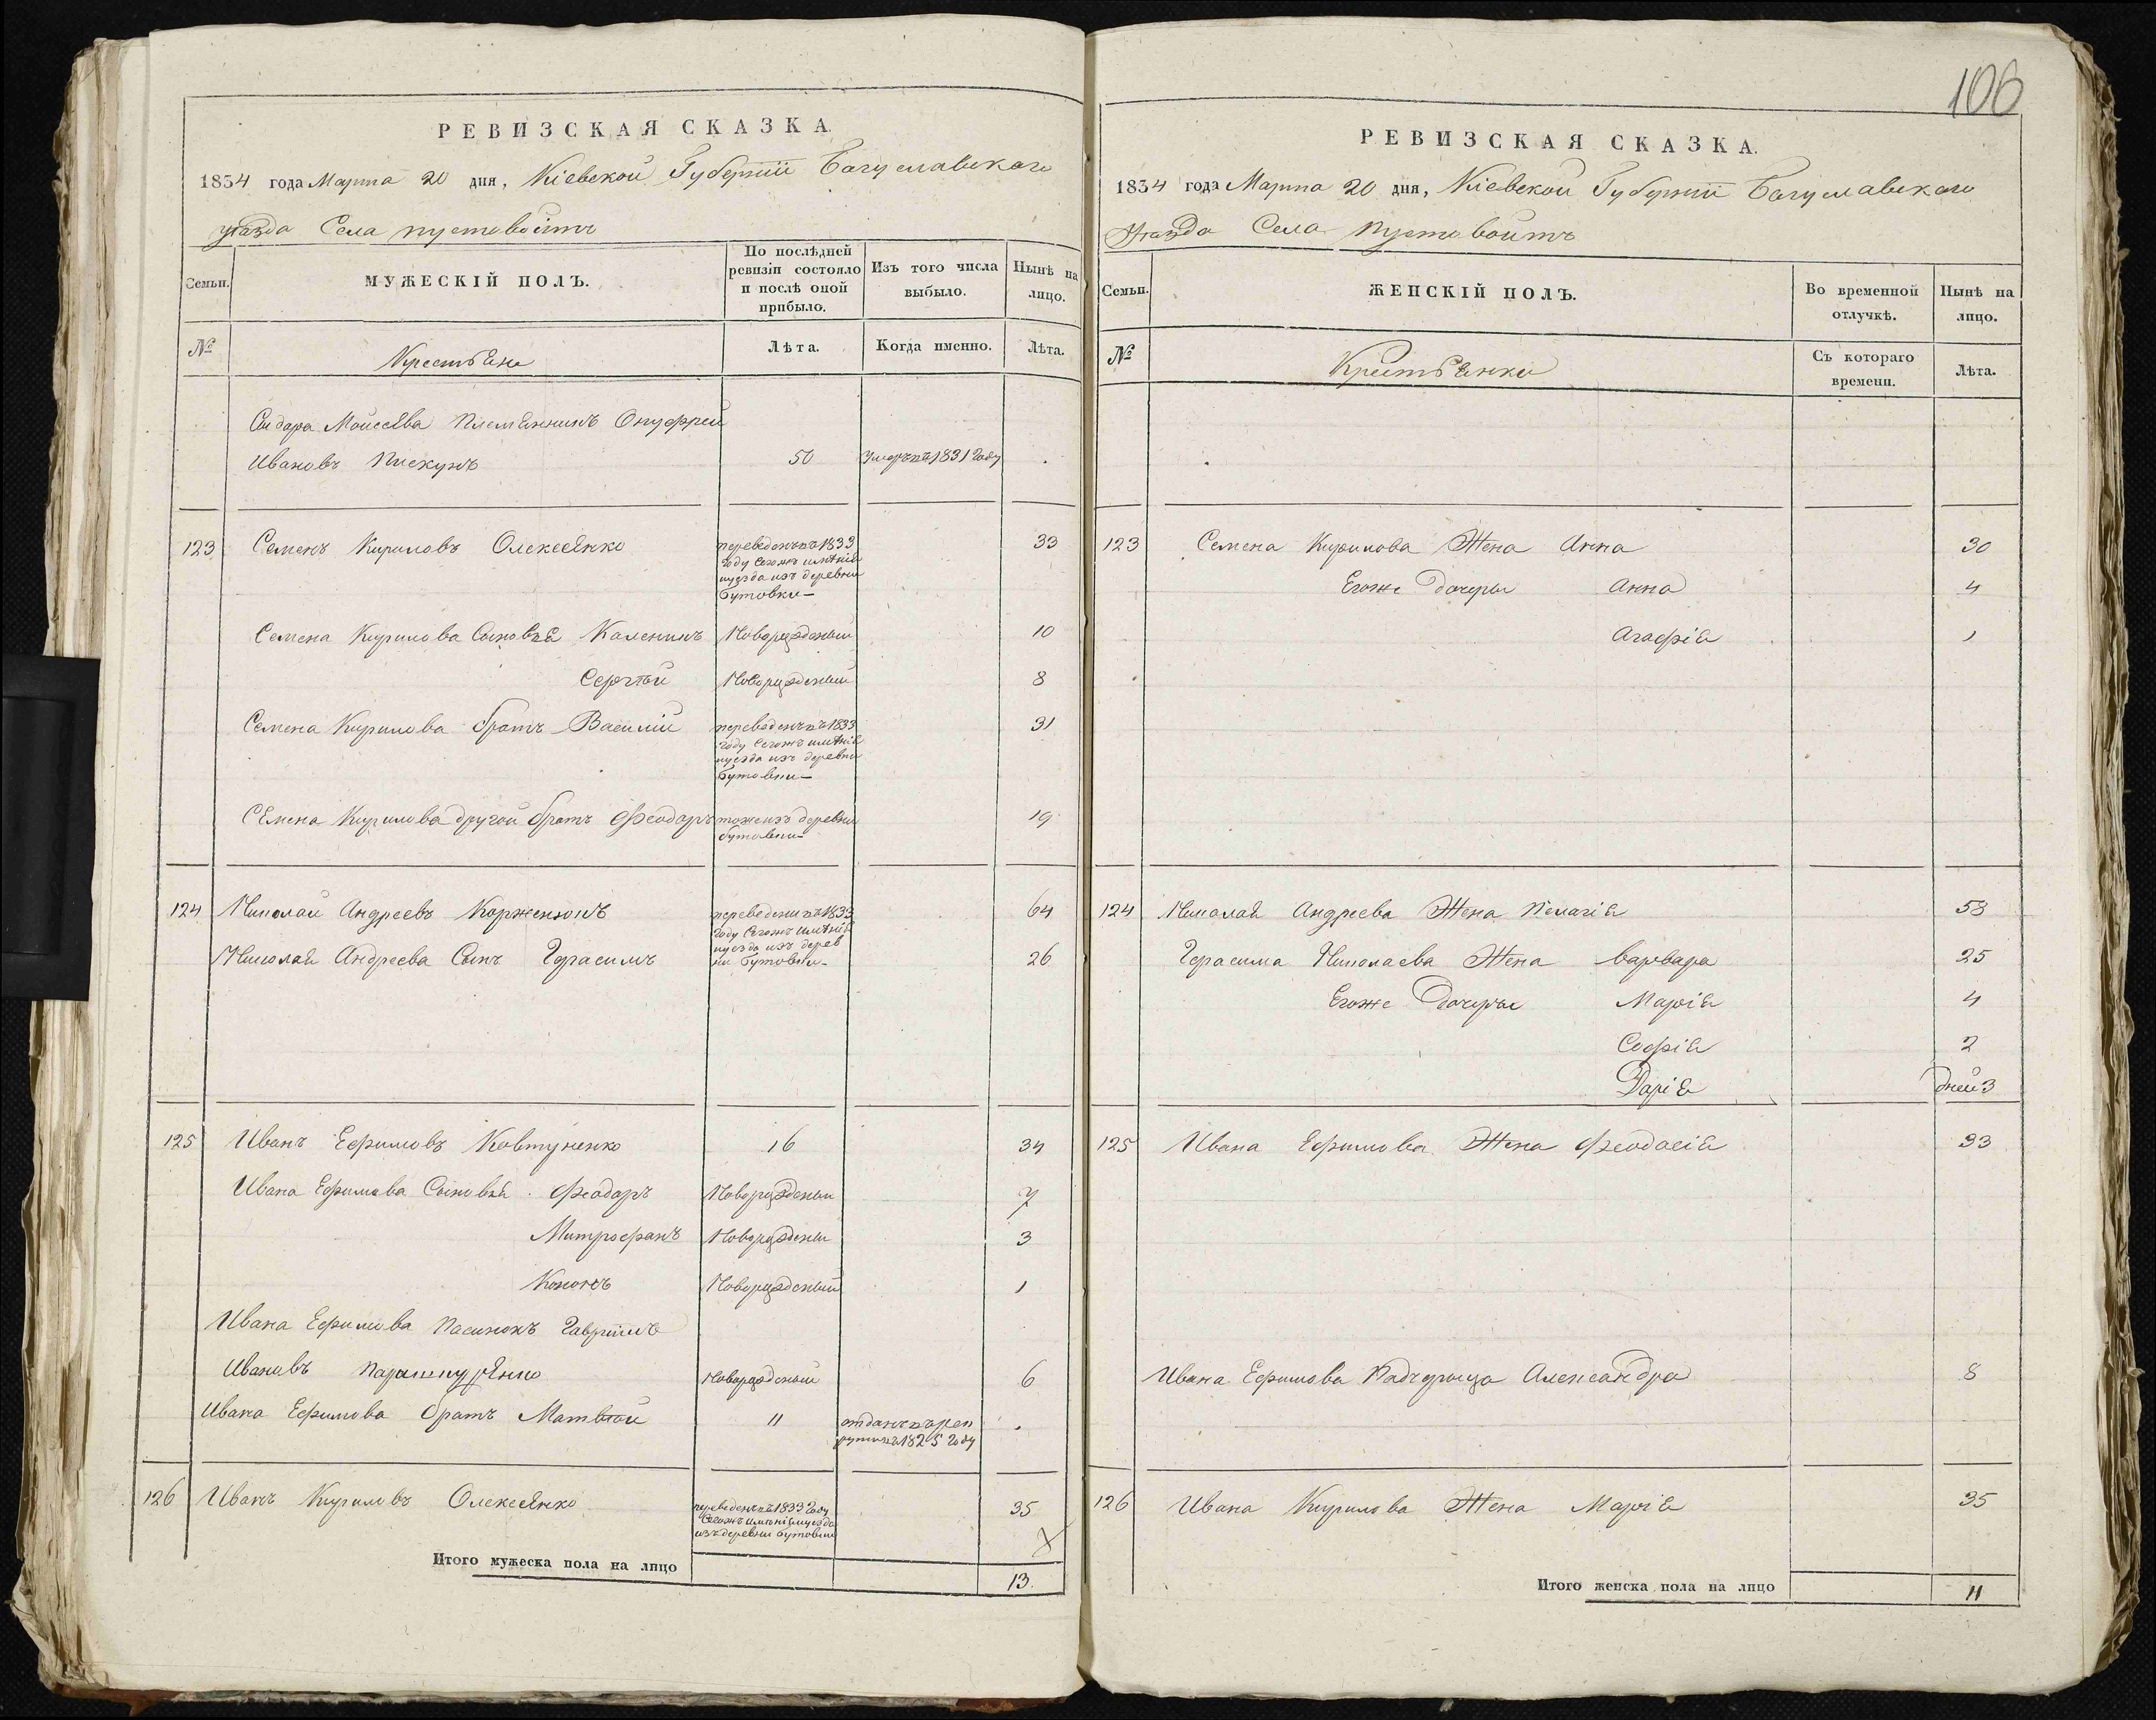 РЕВИЗСКАЯ СКАЗКА.
1834 года Марта 20 дня, Кіевской Губерніи Богуславскаго
уѣзда Села пустовойтъ
Семьи.
МУЖЕСКІЙ ПОЛЪ.
По послѣдней
ревизіи состояло
и послѣ оной
прибыло.
Изъ того числа
выбыло.
Нынѣ на
лицо.
№
Крестьяне
Лѣта.
Когда именно.
Лѣта.
Сидора Моисеева племянникъ Онуфрей
Ивановъ Пискунъ 50 умеръ въ 1831 году
123 Семенъ Кириловъ Олексеенко переведенъ въ 1833 33
году сегожъ имѣнія
иуезда изъ деревни
Бутовки
Семена Кирилова Сыновья Каленикъ Новорожденый 10
Сергѣй Новорожденый 8
Семена Кирилова братъ Василій переведенъ въ 1833 31
году сегожъ имѣнія
иуезда изъ деревни
Бутовки
Семена Кирилова другой братъ Феодоръ тоже изъ деревни 19
бутовки
124 Николай Андреевъ Корженюкъ переведени въ 1833 64
году сегожъ имѣнія
иуезда изъ дерев
ни Бутовки
Николая Андреева Сынъ Герасимъ 26
125 Иванъ Ефимовъ Ковтуненко 16 34
Ивана Ефимова Сыновья Феодоръ Новорожденый 7
Митрофанъ Новорожденый 3
Кононъ Новорожденый 1
Ивана Ефимова пасинокъ Гавріилъ
Ивановъ Новорожденый 6
Ивана Ефимова братъ Матвѣй 11 отданъ въ рек
руты въ 1825 году
126 Иванъ Кириловъ Олексеенко переведенъ въ 1833 году 35
Сегожъ имѣнія иуезда
изъ деревни Бутовки
Итого мужеска пола на лицо 13.
106
РЕВИЗСКАЯ СКАЗКА.
1834 года Марта 20 дня, Кіевской Губерніи Богуславскаго
уѣзда Села Пустовойтъ
Семьи.
ЖЕНСКІЙ ПОЛЪ.
Во временной
отлучкѣ.
Нынѣ на
лицо.
№
Крестьянки
Съ котораго
времени.
Лѣта.
123 Семена Кирилова Жена Анна 30
Егоже дочеры Анна 4
Агафія 1
124 Николая Андреева Жена Пелагія 58
Герасима Николаева Жена Варвара 25
Егоже Дочеры Марія 4
Софія 2
Дарія дней 3
125 Ивана Ефимова Жена Феодосія 33
Ивана Ефимова Падчерыца Александра 8
126 Ивана Кирилова Жена Марія 35
Итого женска пола на лицо 11